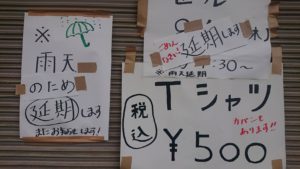 ※
雨天
のため
延期します
またお知らせします！
ごめんなさい
延期します
木）
:30〜
※雨天延期
税込
Tシャツ
¥500
カバンも
あります!!